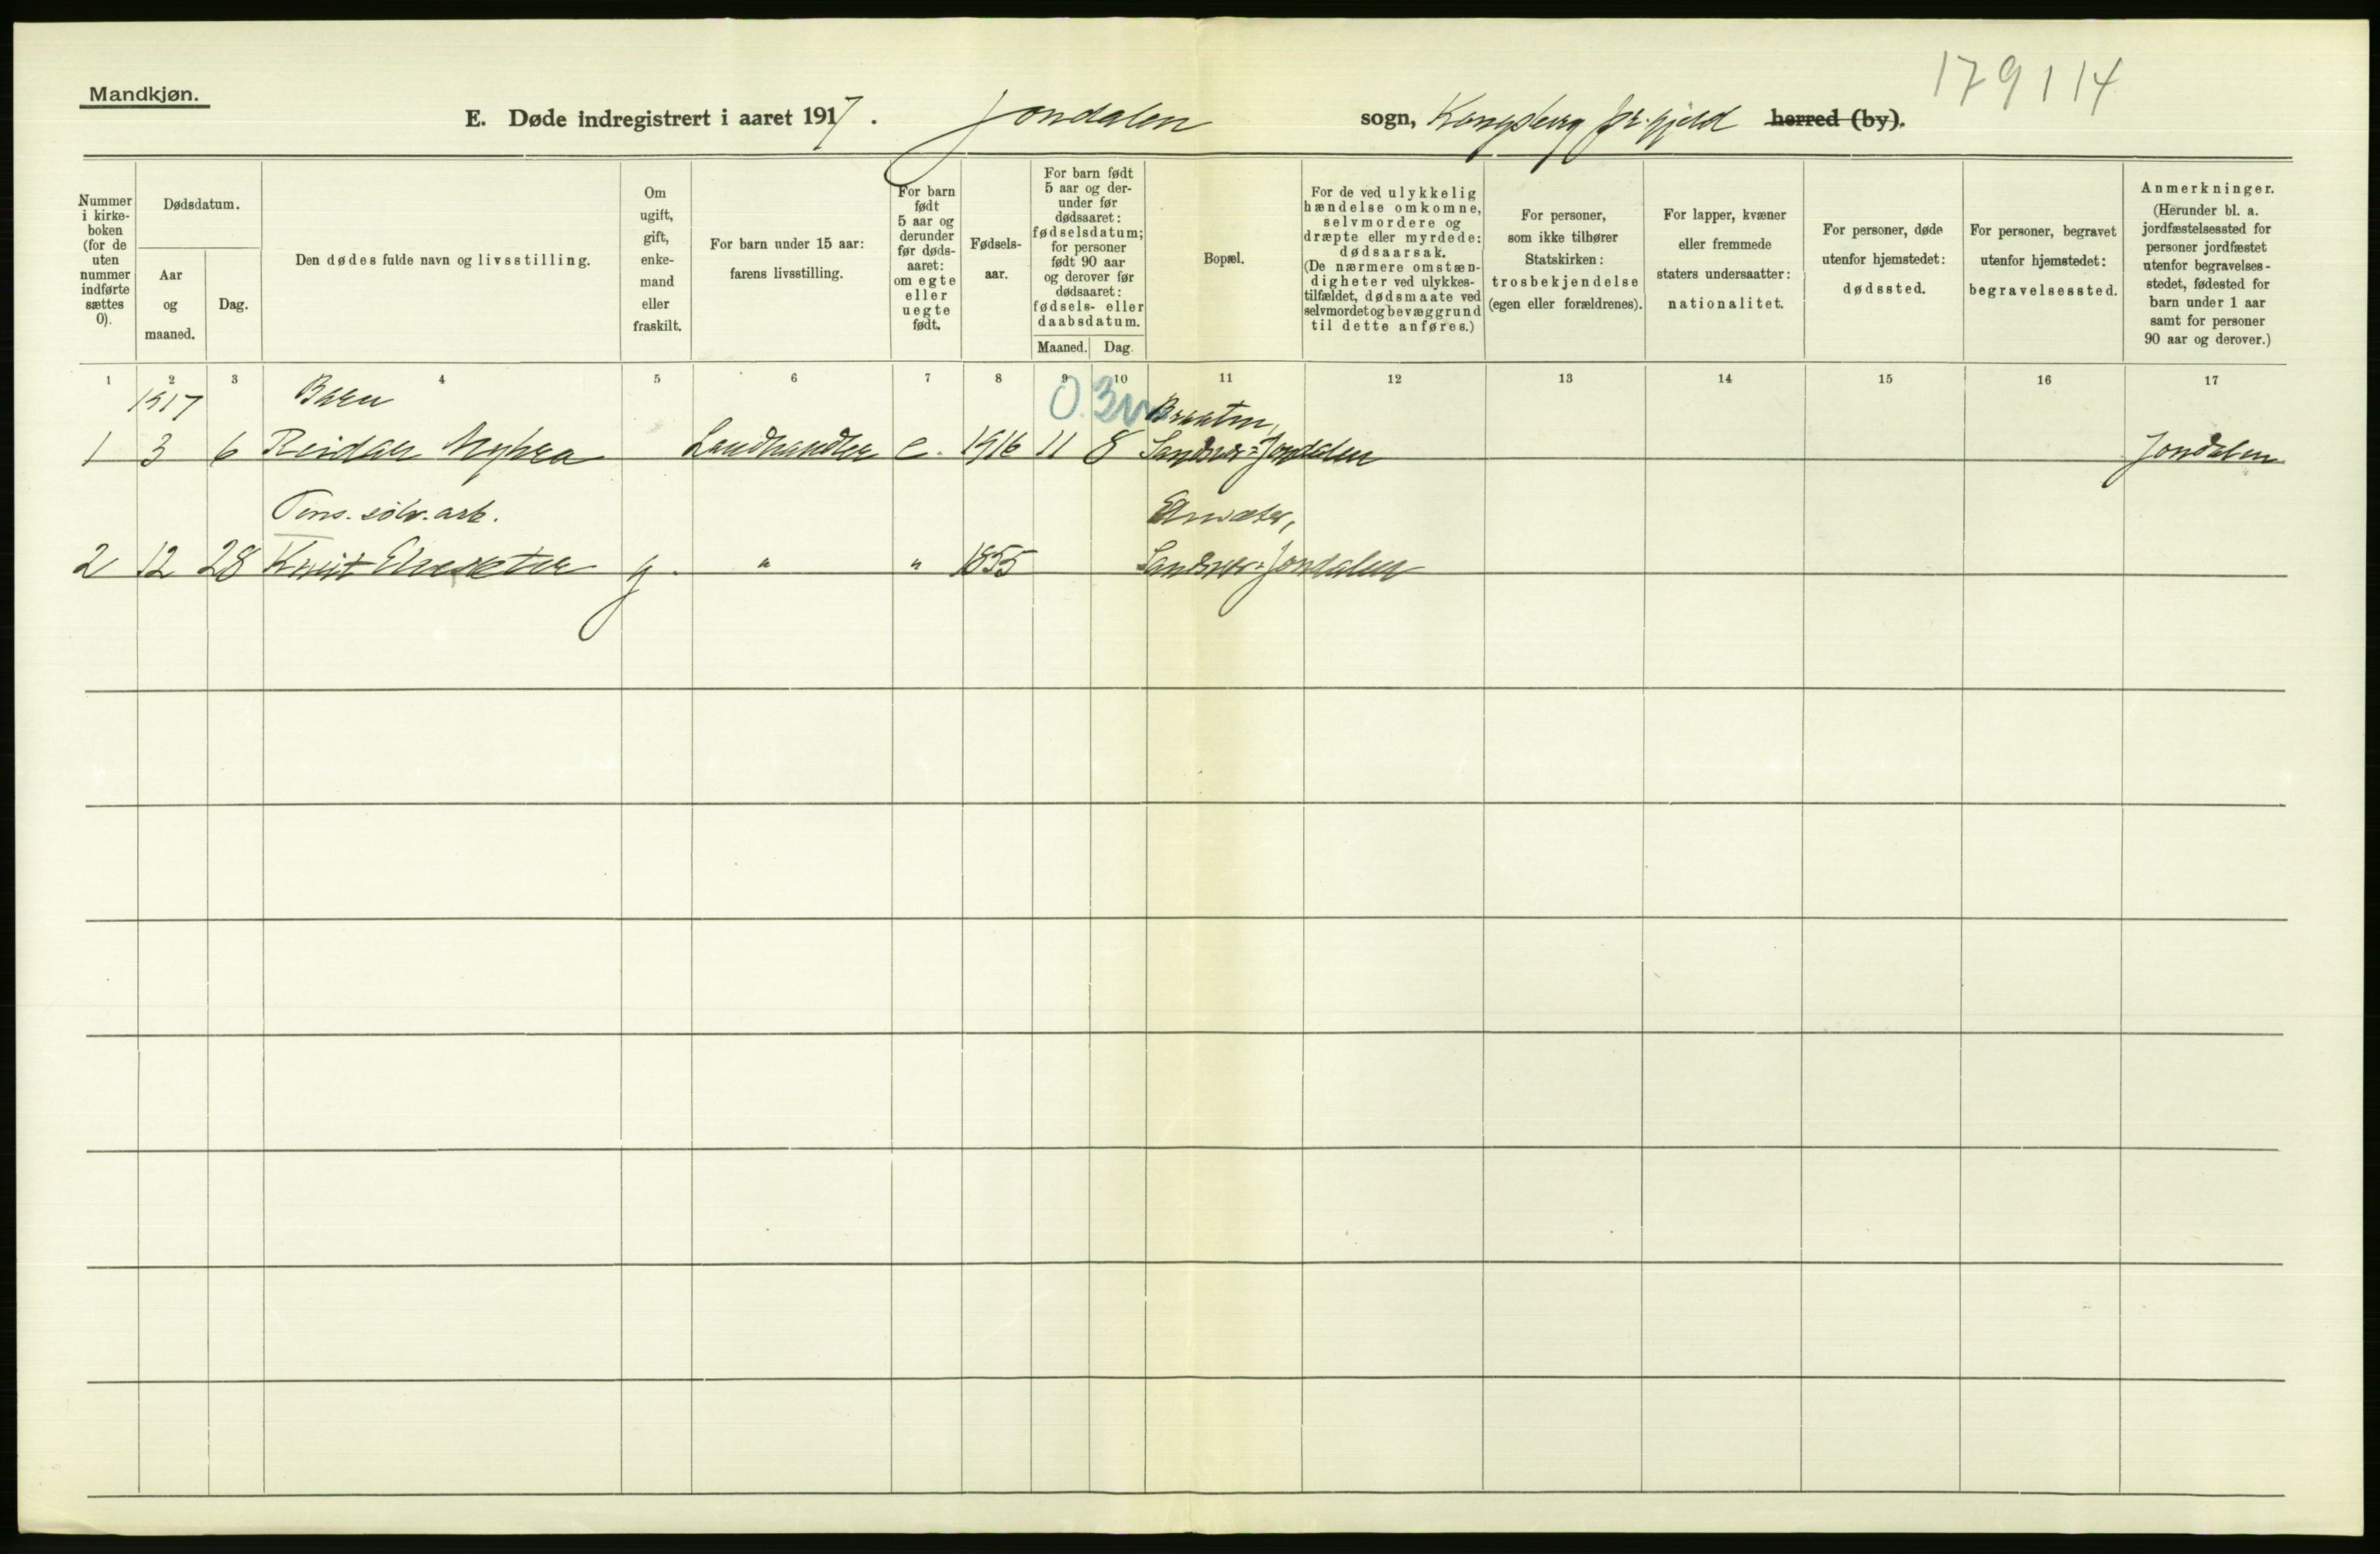 179114
Mandkjøn.
E. Døde indregistrert i aaret 1917. Jondalen sogn, Kongsberg pr.gjeld herred (by).
Nummer i kirke- boken (for de uten nummer indførte sættes 0).
Dødsdatum.
Aar og maaned.
Dag.
Den dødes fulde navn og livsstilling.
Om ugift, gift, enke- mand eller fraskilt.
For barn under 15 aar: farens livsstilling.
For barn født 5 aar og derunder før døds- aaret: om egte eller uegte født.
Fødsels- aar.
For barn født 5 aar og der- under før dødsaaret: fødselsdatum; for personer født 90 aar og derover før dødsaaret: fødsels- eller daabsdatum.
Maaned. Dag.
Bopæl.
For de ved ulykkelig hændelse omkomne, selvmordere og dræpte eller myrdede: dødsaarsak. (De nærmere omstæn- digheter ved ulykkes- tilfældet, dødsmaate ved selvmordet og bevæggrund til dette anføres.)
For personer, som ikke tilhører Statskirken: trosbekjendelse (egen eller forældrenes).
For lapper, kvæner eller fremmede staters undersaatter: nationalitet.
For personer, døde utenfor hjemstedet: dødssted.
For personer, begravet utenfor hjemstedet: begravelsessted.
Anmerkninger. (Herunder bl. a. jordfæstelsessted for personer jordfæstet utenfor begravelses- stedet, fødested for barn under 1 aar samt for personer 90 aar og derover.)
1 2 3 4 5 6 7 8 9 10 11 12 13 14 15 16 17
1917 Barn 0.3m Braaten,
1 3 6 Reidar Myhra Landhandler e. 1916 11 8 Sandsvær-Jondalen Jondalen
Pens. sølv.arb.
2 12 28 Knut g. " " 1855 Sandsvær-Jondalen